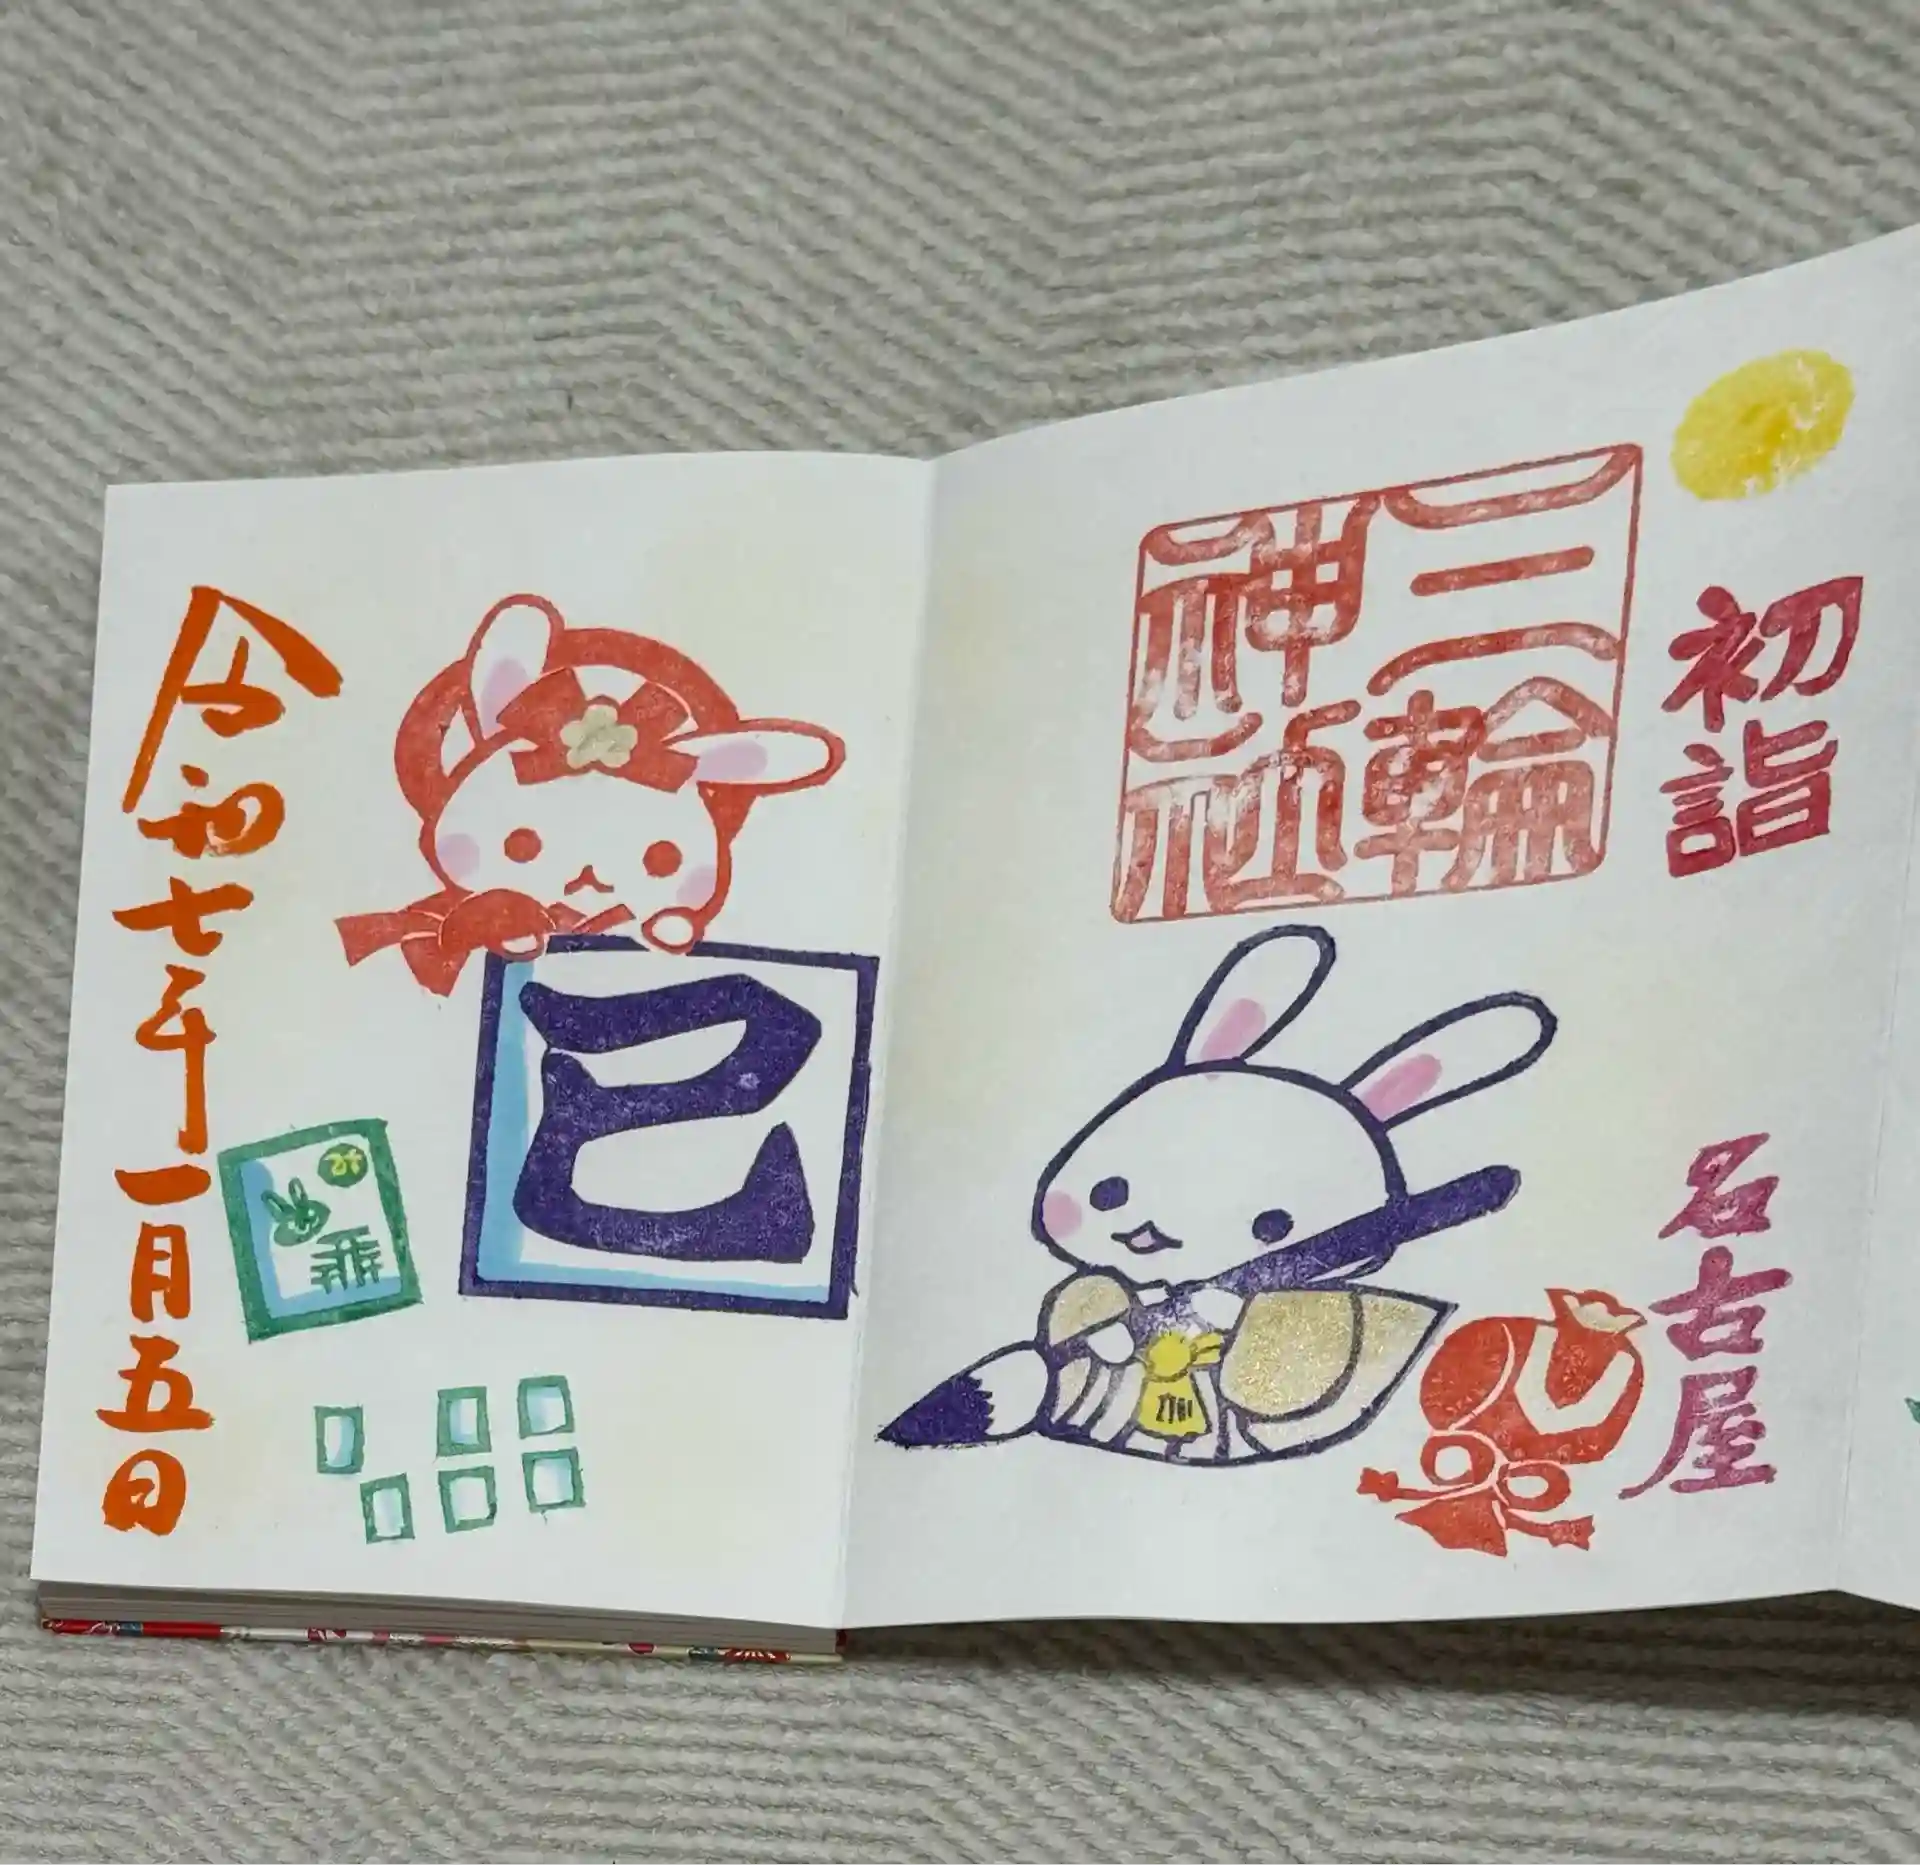 初詣
名古屋
三輪
神社
巳
令和七年一月五日